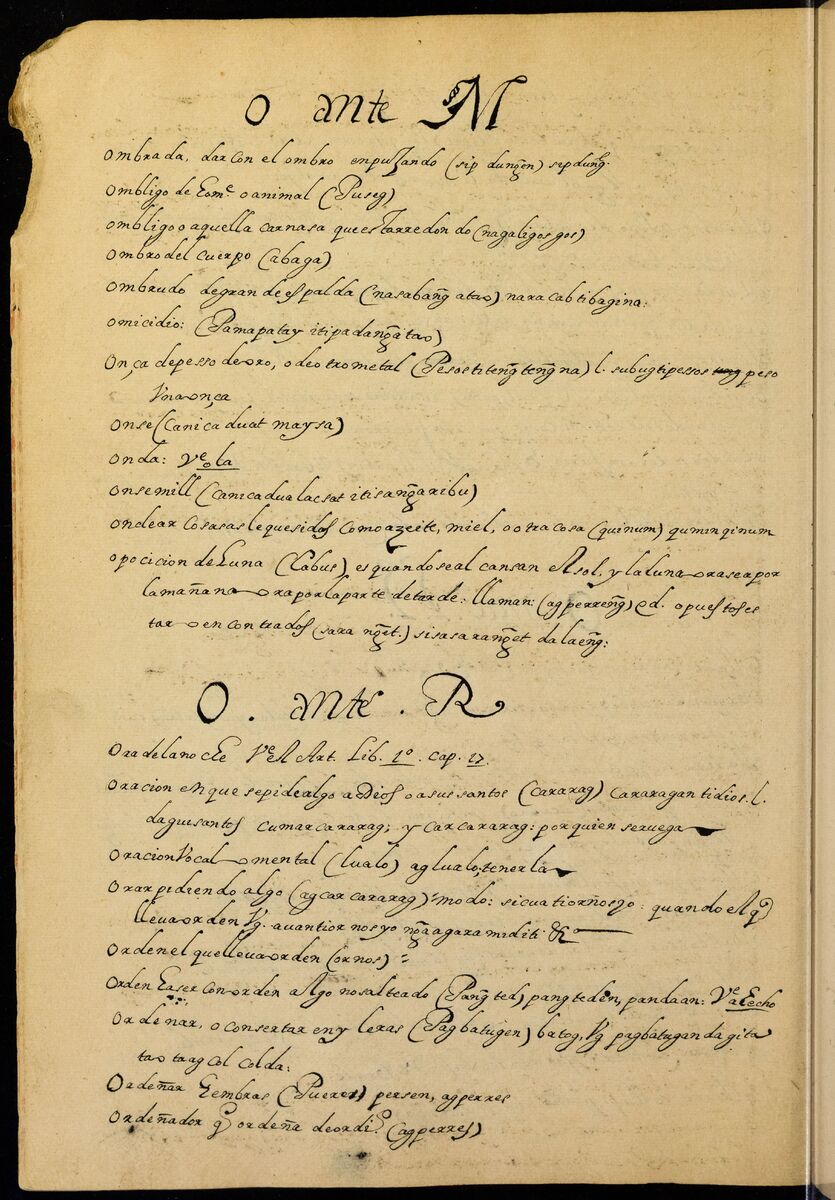 O ante M
Ombrada, dar con el ombro enpuzando (sip dung̃en) sipdung̃.
Ombligo de hom.e o animal (Puseg)
ombligo o aquella carnasa questarredondo (nagaligosgos)
Ombro del cuerpo (abaga)
Ombrudo de grandes palda (nasabang̃ a tao) nara cabtibagina:
omicidio: (Pamapatay itipadang̃atao)
Onça depesso de oro, o de otro metal (Pesos titeng̃teng̃na) l. subugtipessos peso
Vna onça
Onse (Caniça duat maysa)
Onda: Ve ola
Onsemill (canicadualacsat itisang̃aribu)
Ondear cosasas lequesidos como azeite, miel, o otra cosa (quinum) quminqinum
opocicion de Luna (Labus) es quando se alcansan el sol, y la luna ora sea por
la mañana ora por la parte de tarde: llaman: (agperreng̃) ed. opuestos es
tar o encontrados (sara ng̃et.) sisasarang̃et dalaeng̃:
O. ante. R
Ora de la noche Ve el Art. Lib. 1o. cap. 17.
Oracion en que sepide algo a Dios o a sus santos (cararag) cararagan tidios. l.
daguisantos cumarcararag; y carcararag: por quien seruega
Oracion Vocal o mental (lualo) aglualo; tenerla
Orar pidiendo algo (agcarcararag) modo: sicuatiorños yo: quando el q.
lleua orden Vg. auantiornosyo ng̃a agaramiditi &.a
Orden el que lleua orden (ornos)
Orden haser con orden algo no salteado (Pang̃ted) pangteden, pandaan: Ve a hecho
Ordenar, o consertar en yleras (Pagbatugen) batog, Vg pagbatugan dagita
tao tragcolcolda:
Ordeñar hembras (Pueres) persen, agperres
Ordeñador q̃ ordeña de ordi.o (agperres)